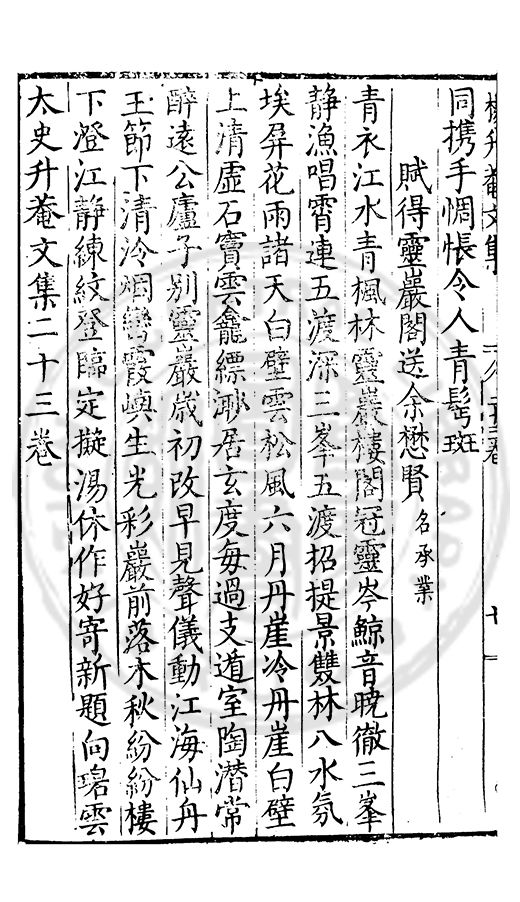 楊升菴文集
同携手惆悵令人青髩斑
賦得靈巖閣送余懋賢名承業
青衣江水青楓林靈巖樓閣冠靈岑鯨音曉徹三峯
静漁唱霄連五渡深三峯五渡招提景雙林八水氛
埃屏花雨諸天白壁雲松風六月丹崖冷丹崖白壁
上清虛石寶雲龕縹渺居玄度每過支遁室陶潜常
醉遠公廬子别靈巖歲初改早見聲儀動江海仙舟
玉節下清泠烟巒霞嶼生光彩巖前落木秋紛紛樓
下澄江静練紋登臨定擬湯休作好寄新題向碧雲
太史升菴文集二十三卷